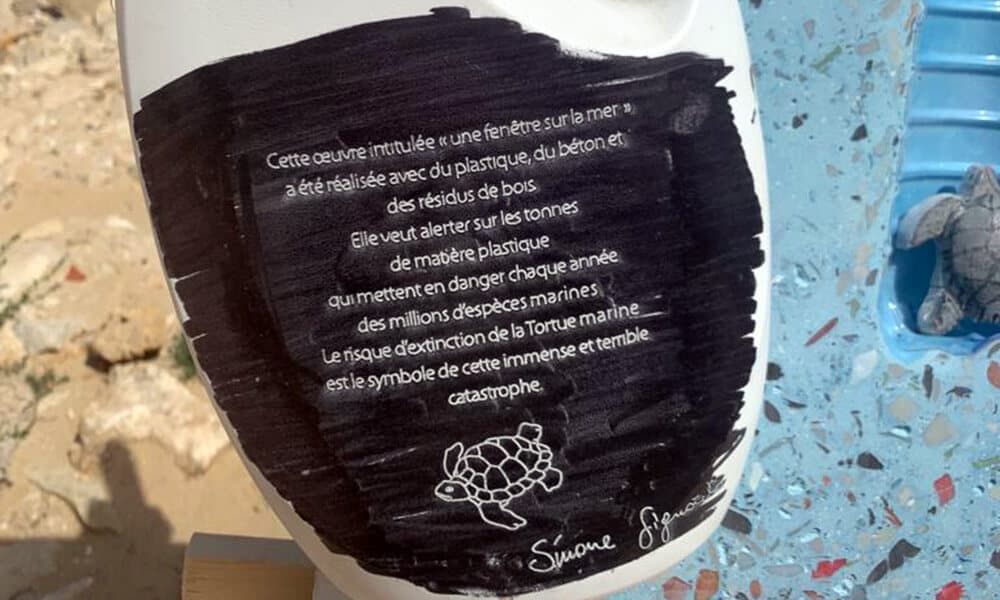 Cette œuvre intitulée « une fenêtre sur la mer »
a été réalisée avec du plastique, du béton et
des résidus de bois
Elle veut alerter sur les tonnes
de matière plastique
qui mettent en danger chaque année
des millions d'espèces marines
Le risque d'extinction de la Tortue marine
est le symbole de cette immense et terrible
catastrophe
Simone